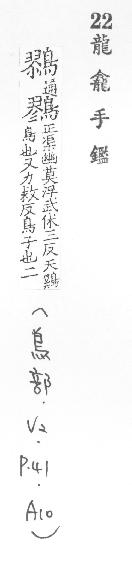 22 龍龕手鑑
通鷚正渠幽莫浮武休三反天鸙
鳥也又力救反鳥子也二
(鳥部. V2. P.41. A10)